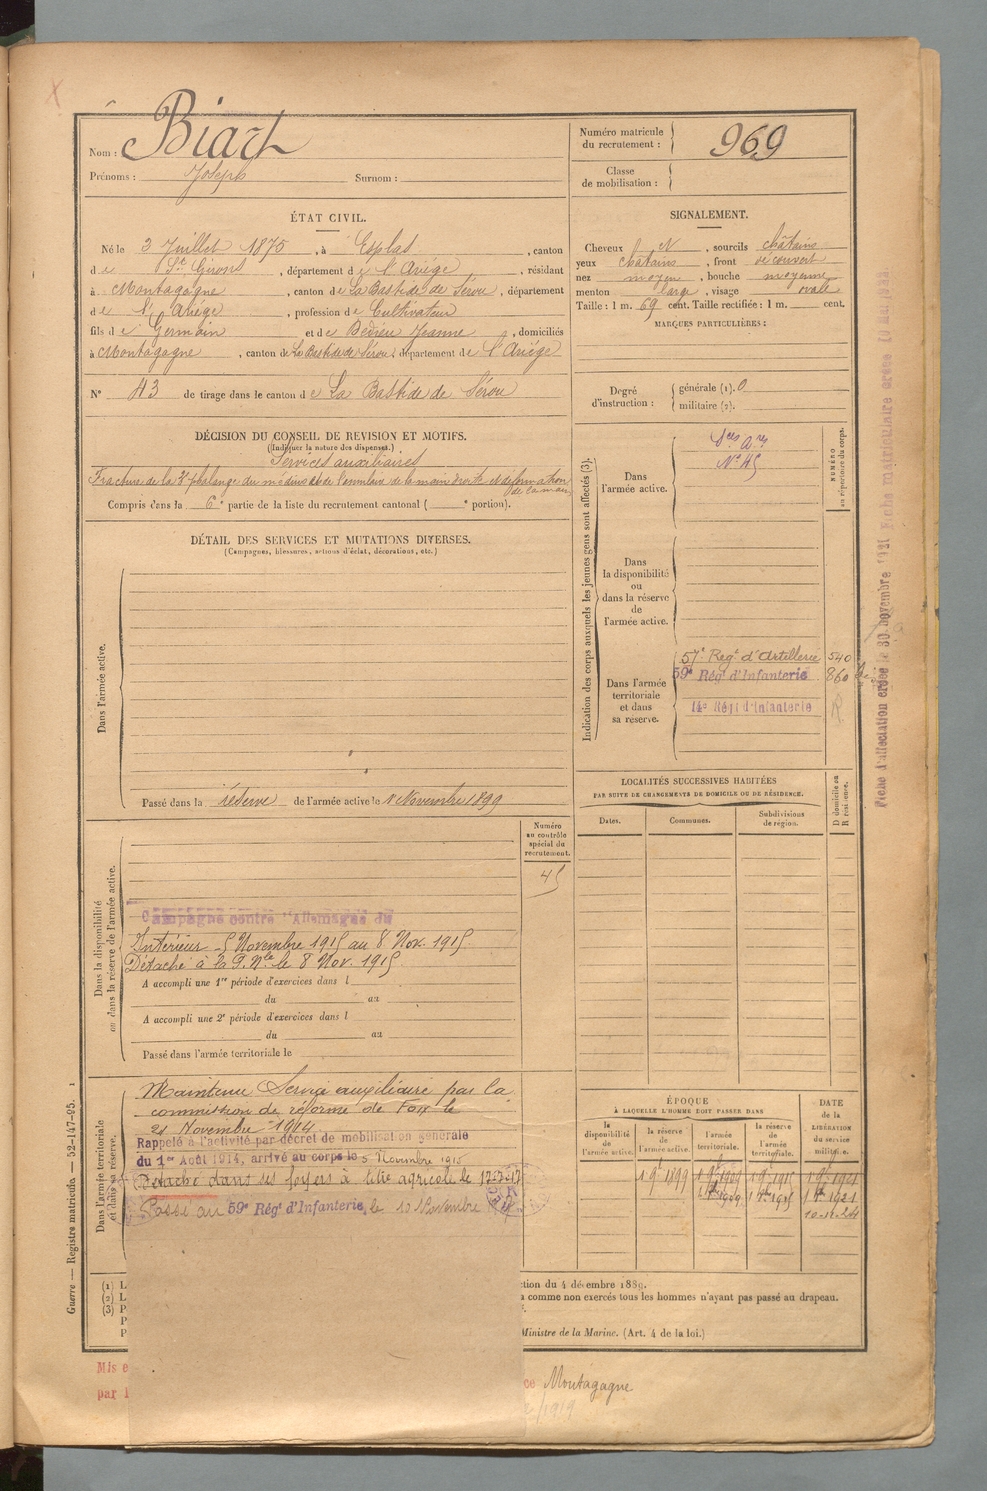 Nom : Biart
Prénoms : Joseph Surnom :
Numéro matricule du recrutement : 969
Classe de mobilisation :
ÉTAT CIVIL.
Né le 3 Juillet 1875, à Esplas, canton
de St Girons, département de l'Ariège, résidant
à Montagagne, canton de La Bastide de Sérou, département
de l'Ariège, profession de Cultivateur
fils de Germain et de Bedeire Jeanne, domiciliés
à Montagagne, canton de La Bastide de Sérou, département de l'Ariège
N° 43 de tirage dans le canton de La Bastide de Sérou
SIGNALEMENT.
Cheveux et, sourcils châtains
yeux châtains, front découvert
nez moyen, bouche moyenne
menton large, visage ovale
Taille : 1 m. 69 cent. Taille rectifiée : 1 m. cent.
MARQUES PARTICULIÈRES :
Degré d'instruction : générale (1). 0
militaire (2).
DÉCISION DU CONSEIL DE REVISION ET MOTIFS.
(Indiquer la nature des dispenses.)
Services auxiliaires
Fracture de la 3e phalange du médius et de l'annulaire de la main droite et déformation
de la main
Compris dans la 6e partie de la liste du recrutement cantonal ( e portion).
DÉTAIL DES SERVICES ET MUTATIONS DIVERSES.
(Campagnes, blessures, actions d'éclat, décorations, etc.)
Dans l'armée active.
Passé dans la réserve de l'armée active le 1 Novembre 1899
Indication des corps auxquels les jeunes gens sont affectés (3).
NUMÉRO
au répertoire du corps.
Dans
l'armée active.
Sces Ares
N° 45
Dans
la disponibilité
ou
dans la réserve
de
l'armée active.
Dans l'armée
territoriale
et dans
sa réserve.
57e Regt d'Artillerie 540
59e Régt d'Infanterie 860
14e Régt d'Infanterie R
LOCALITÉS SUCCESSIVES HABITÉES
PAR SUITE DE CHANGEMENTS DE DOMICILE OU DE RÉSIDENCE.
D domicile ou
R résidence.
Dates.
Communes.
Subdivisions
de région.
Dans la disponibilité
ou dans la réserve de l'armée active.
Numéro
au contrôle
spécial du
recrutement.
45
Campagne contre l'Allemagne du
Intérieur 5 Novembre 1915 au 8 Nov. 1915
Détaché à la P. Nle le 8 Nov. 1915
A accompli une 1re période d'exercices dans l
du au
A accompli une 2e période d'exercices dans l
du au
Passé dans l'armée territoriale le
Dans l'armée territoriale
et dans sa réserve.
Maintenu Service auxiliaire par la
commission de réforme de Foix le
21 Novembre 1914
Rappelé à l'activité par décret de mobilisation générale
du 1er Août 1914, arrivé au corps le 5 Novembre 1915
Détaché dans ses foyers à titre agricole le
Passé au 59e Régt d'Infanterie, le 10 Novembre
ÉPOQUE
À LAQUELLE L'HOMME DOIT PASSER DANS
la
disponibilité
de
l'armée active.
la réserve
de
l'armée active.
l'armée
territoriale.
la réserve
de
l'armée
territoriale.
DATE
de la
LIBÉRATION
du service
militaire.
10-11-24
(1) L
(2) L
(3) P
P
ction du 4 décembre 1889.
a comme non exercés tous les hommes n'ayant pas passé au drapeau.
Ministre de la Marine. (Art. 4 de la loi.)
Mis e
par l
ce Montagagne
/1919
Guerre — Registre matricule. — 52-147-95. 1
Fiche d'affectation créée le 30 novembre 1921 Fiche matriculaire créée